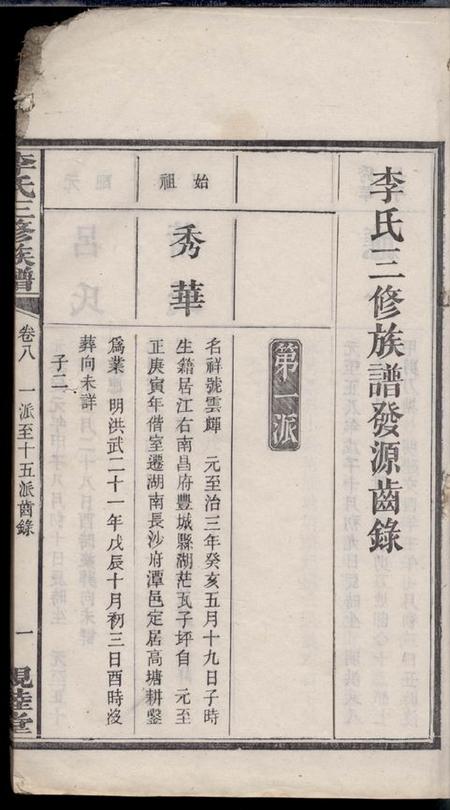 李氏三修族譜發源齒錄
第一派
始祖
秀華
名祥號雲輝 元至治三年癸亥五月十九日子時
生籍居江右南昌府豐城縣湖茫瓦子坪自 元至
正庚寅年偕室遷湖南長沙府潭邑定居高塘耕鑿
為業 明洪武二十一年戊辰十月初三日酉時沒
葬向未詳
子二
李氏三修族譜
卷八 一派至十五派齒錄
一
睦堂